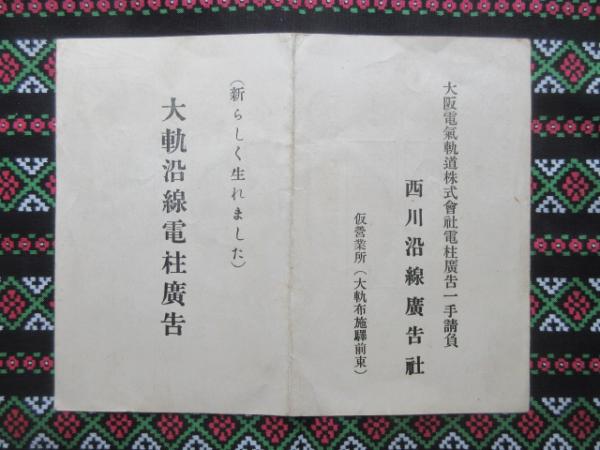 大阪電氣軌道株式會社電柱廣告一手請負
西川沿線廣告社
仮営業所（大軌布施驛前東）
（新らしく生れました）
大軌沿線電柱廣告